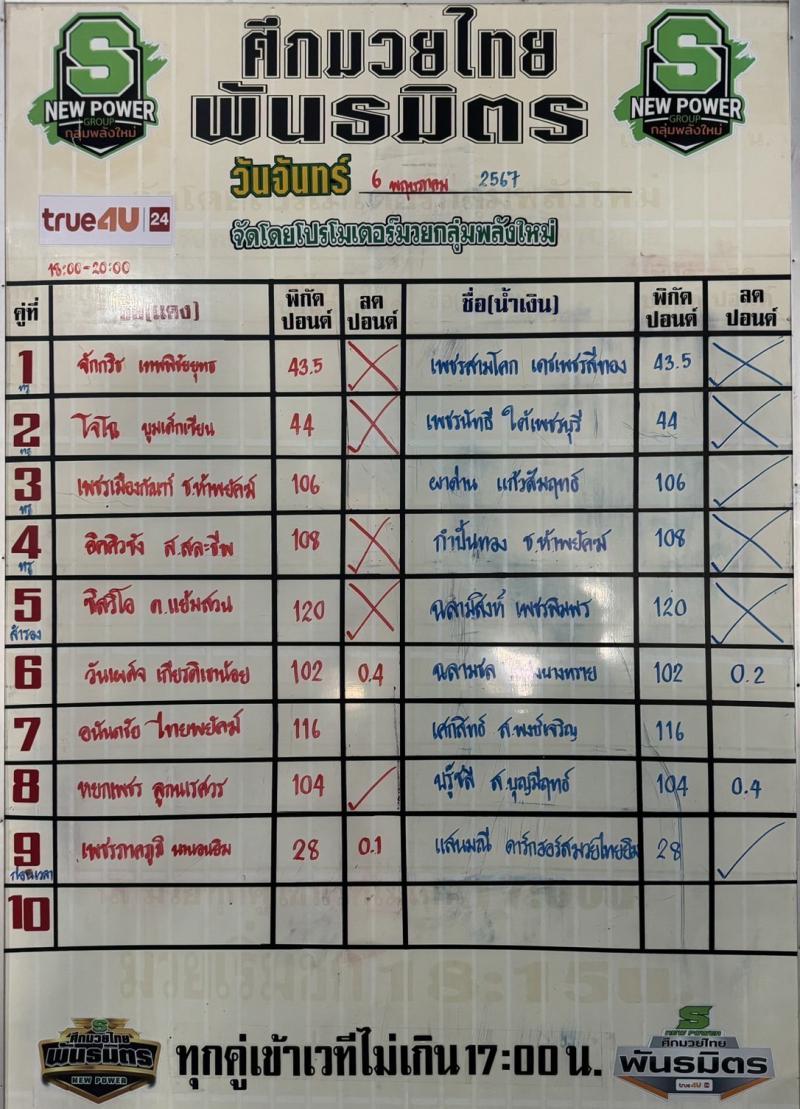 S
NEW POWER
GROUP
กลุ่มพลังใหม่
ศึกมวยไทย
พันธมิตร
S
NEW POWER
GROUP
กลุ่มพลังใหม่
วันจันทร์ 6 พฤษภาคม 2567
true4U 24
จัดโดยโปรโมเตอร์มวยกลุ่มพลังใหม่
18:00-20:00
คู่ที่ ชื่อ(แดง) พิกัดปอนด์ ลดปอนด์ ชื่อ(น้ำเงิน) พิกัดปอนด์ ลดปอนด์
1 จักกวิช เทพพิชัยยุทธ 43.5 เพชรสามโคก เดชเพชรสีทอง 43.5
ทรู
2 โจโฉ บูมเด็กเซียน 44 เพชรนัทธี ใต้เพชรบุรี 44
ทรู
3 เพชรเมืองกัณฑ์ ช.ห้าพยัคฆ์ 106 ผาด่าน แก้วสัมฤทธ์ 106
ทรู
4 อิคคิวซัง ส.สละชีพ 108 กำปั้นทอง ช.ห้าพยัคฆ์ 108
ทรู
5 ซิลวิโอ ต.แย้มสวน 120 ฉลามสิงห์ เพชรพิมพร 120
สำรอง
6 วันเผด็จ เกียรติเขาน้อย 102 0.4 ฉลามชล 102 0.2
7 อนันตชัย ไทยพยัคฆ์ 116 เศกสิทธ์ ส.พงษ์เจริญ 116
8 หยกเพชร ลูกนเรศวร 104 บรู๊ซลี ส.บุญมีฤทธ์ 104 0.4
9 เพชรภาคภูมิ 28 0.1 แสนมณี ดาร์กฮอร์สมวยไทยยิม 28
ก่อนเวลา
10
S
ศึกมวยไทย
พันธมิตร
NEW POWER
ทุกคู่เข้าเวทีไม่เกิน 17:00 น.
S
NEW POWER
ศึกมวยไทย
พันธมิตร
true4U 24